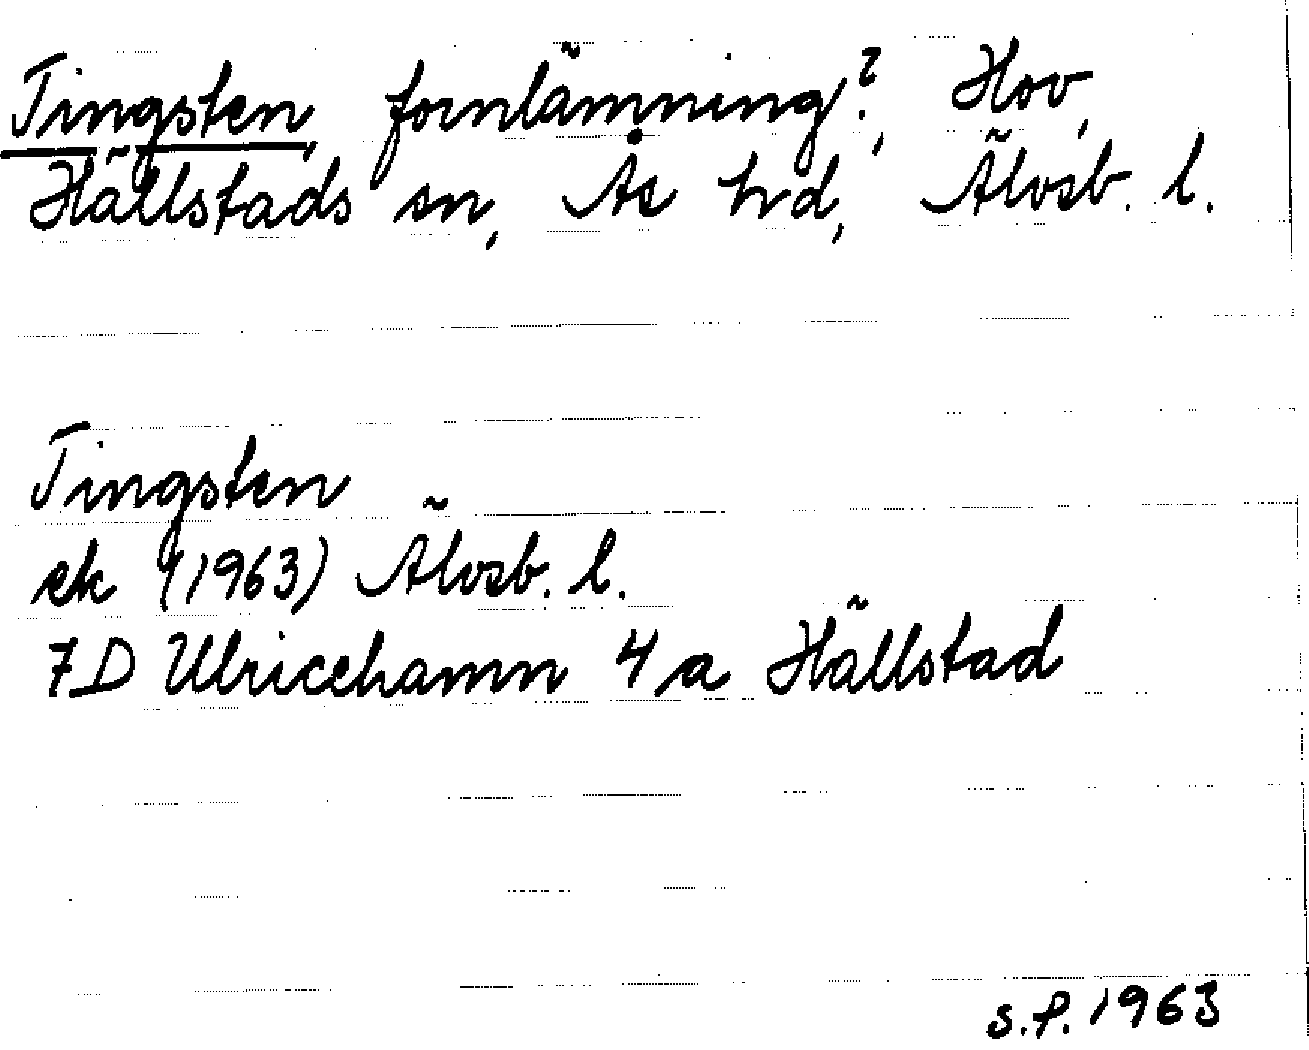 Tingsten, fornlämning?, Hov,
Hällstads sn, Ås hd, Älvsb. l.
Tingsten
ek (1963) Älvsb. l.
7D Ulricehamn 4a Hällstad
s.f. 1963